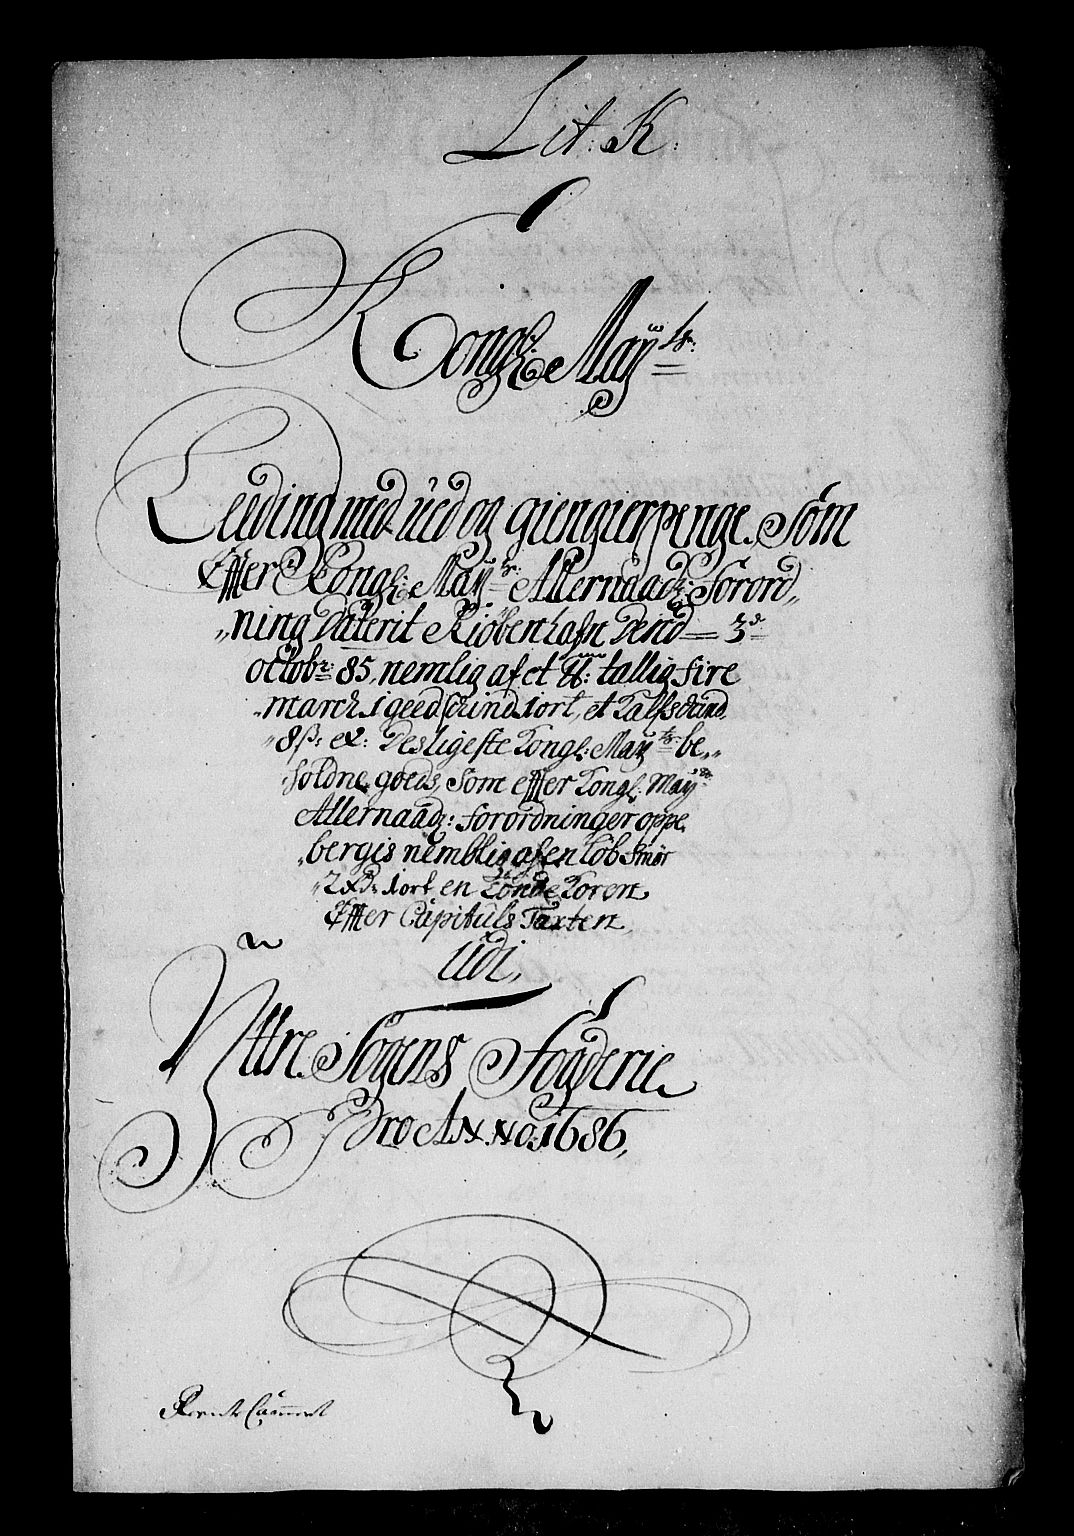 Lit: K:
Kongl: Mayts:
Leeding med ued og giengierpenge. Som
Effter Kongl: Mayts: Allernaadg: Forord„
„ning Daterit Kiøbenhafn Dend — 3de
octobr: 85, nemlig af et tallig fire
march 1 geedschind 1 ort, et Kalfschind
8 ß: ex: Desligeste Kongl: Mayts: be„
„soldne goeds, Som effter Kongl: Mayts
Allernaadg: forordninger oppe
„bergis nemblig af en løb Smør
„2 Rd: 1 ort en Tønde Koren
Effter Capituls Taxten
Udi,
Yttre Sogens Fogderie
Pro Anno: 1686,
Rente Cammeret